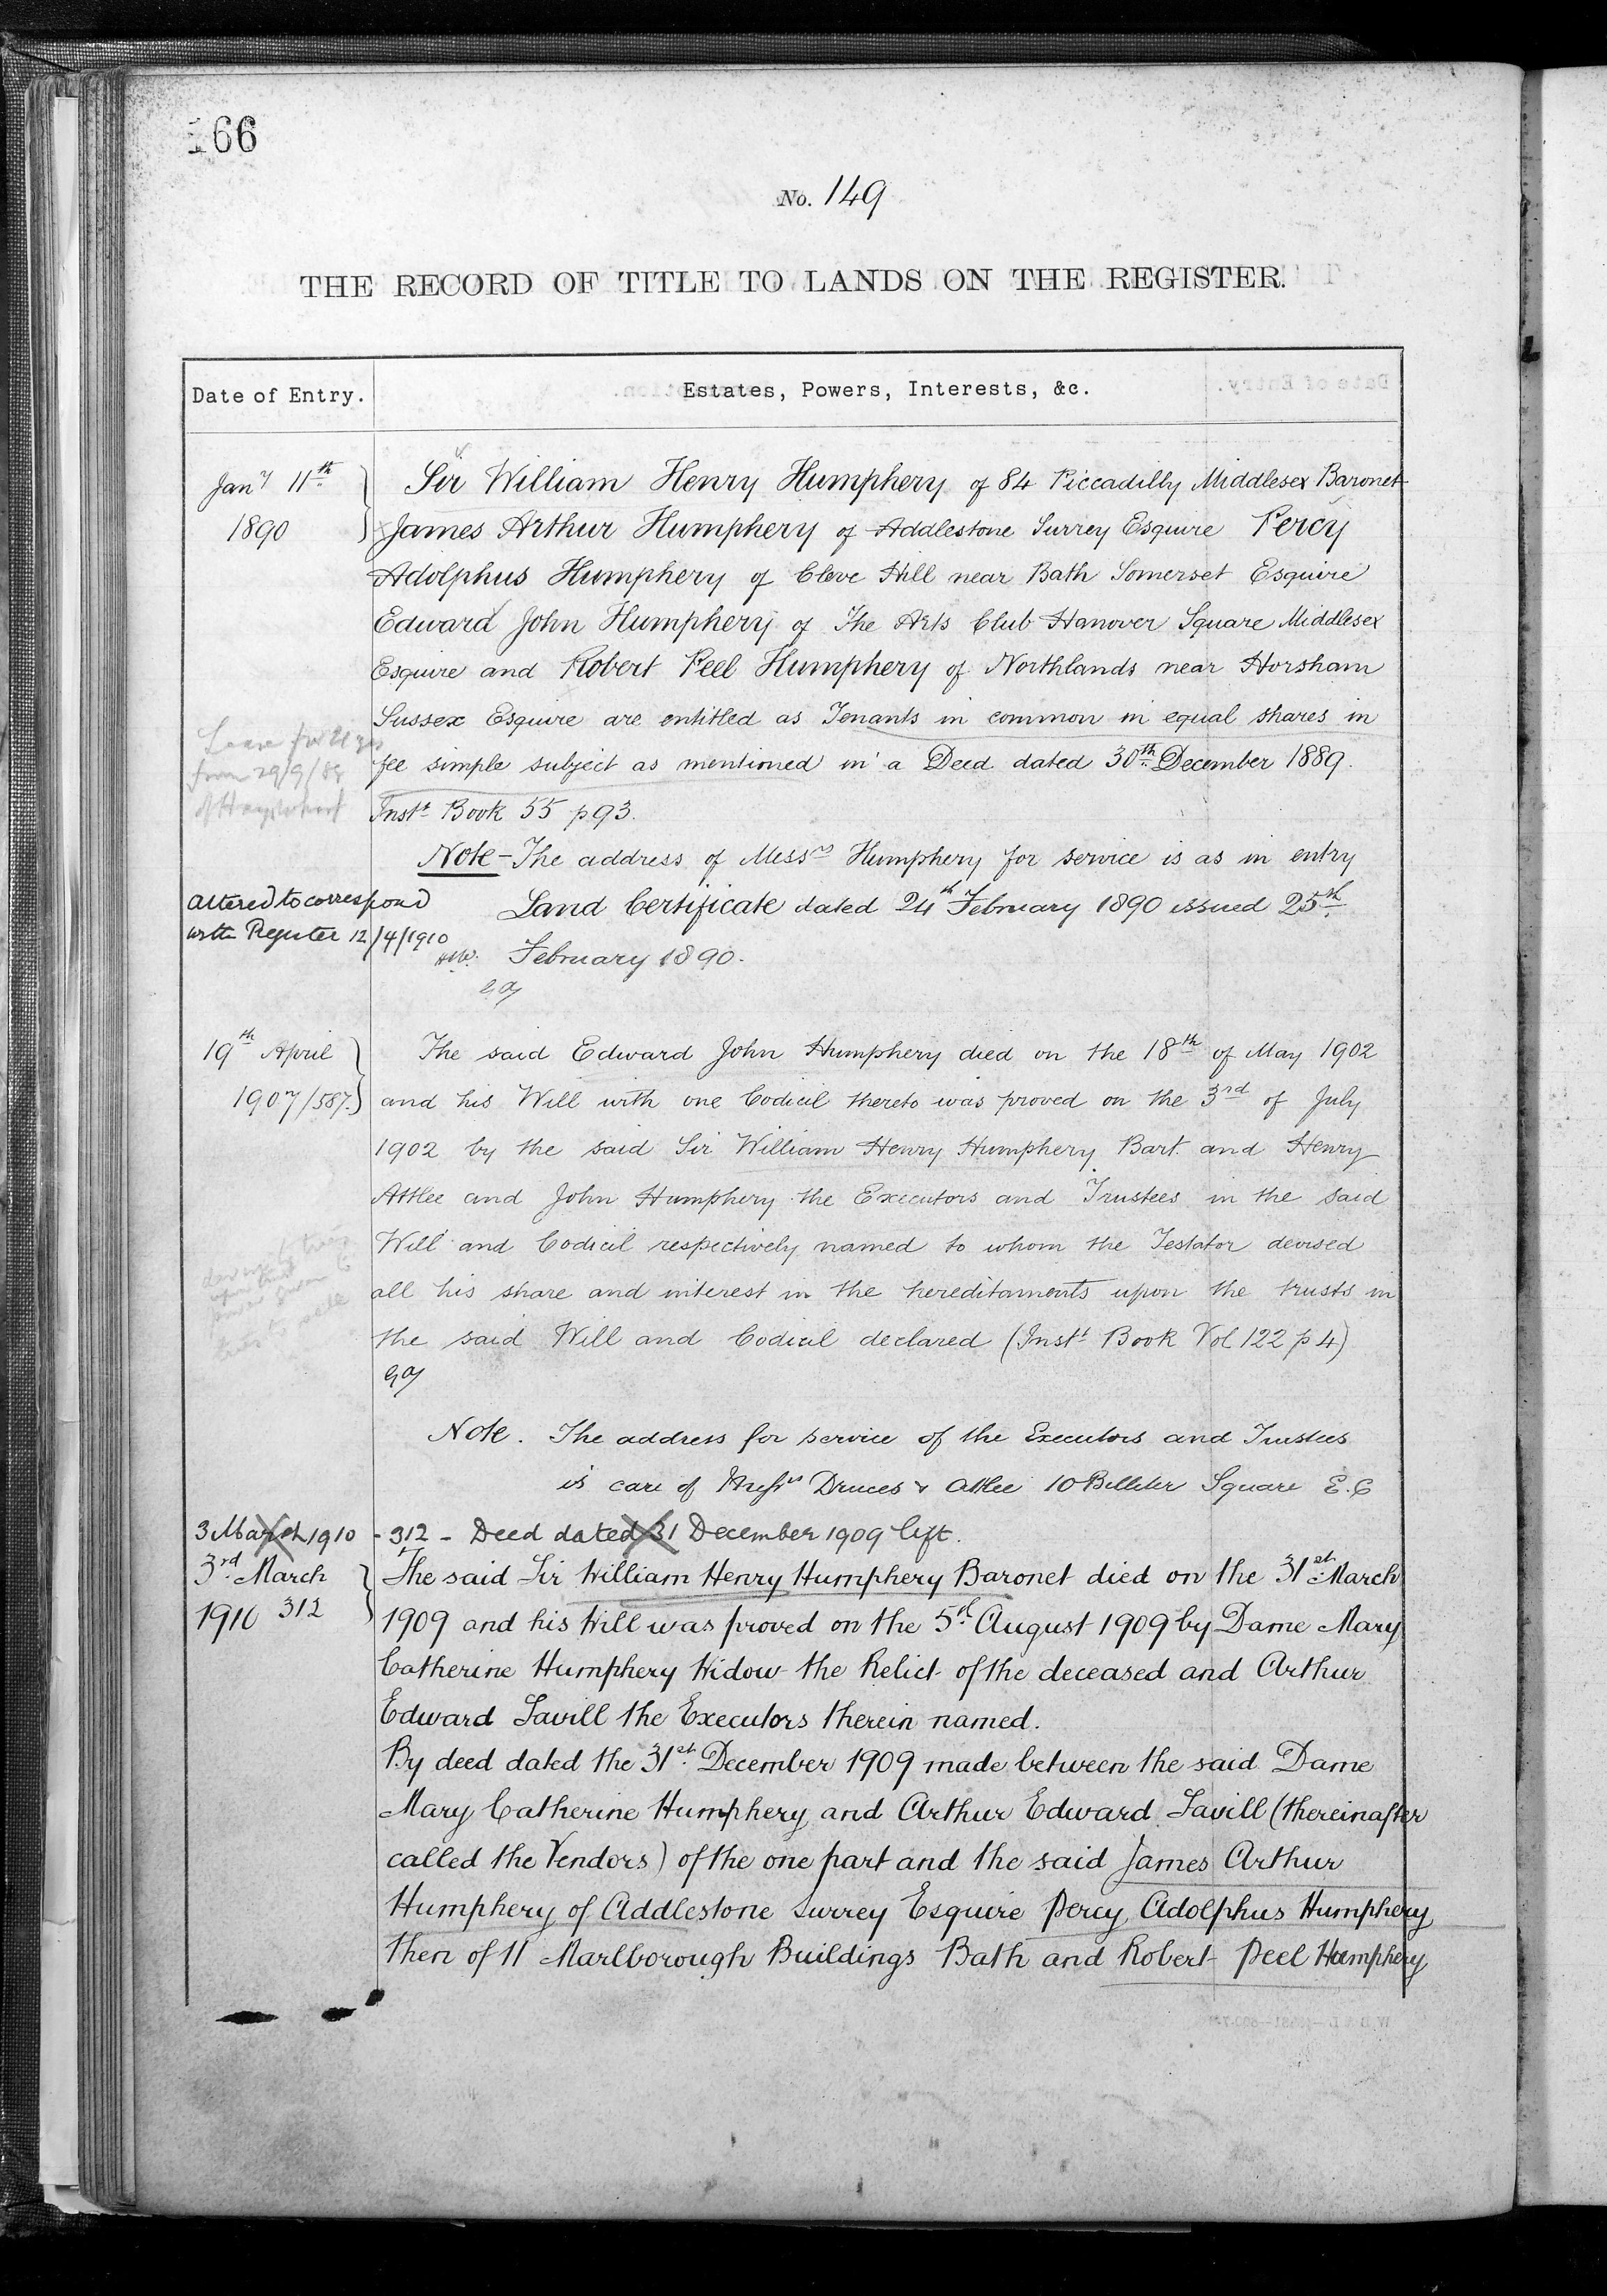 166
No. 149
THE RECORD OF TITLE TO LANDS ON THE REGISTER.
Date of Entry.
Estates, Powers, Interests, &c.
Jany 11th
1890
Sir William Henry Humphery of 84 Piccadilly Middlesex Baronet
James Arthur Humphery of Addlestone Surrey Esquire Percy
Adolphus Humphery of Cleve Hill near Bath Somerset Esquire
Edward John Humphery of The Arts Club Hanover Square Middlesex
Esquire and Robert Peel Humphery of Northlands near Horsham
Sussex Esquire are entitled as Tenants in common in equal shares in
fee simple subject as mentioned in a Deed dated 30th December 1889.
Inst. Book 55 p 93.
Lease for 21 yrs
from 29/9/88
of Hays Wharf
Note - The address of Messrs Humphery for service is as in entry
Altered to correspond
with Register 12/4/1910
Land Certificate dated 24th February 1890 issued 25th
February 1890.
19th April
1907/587.
The said Edward John Humphery died on the 18th of May 1902
and his Will with one Codicil thereto was proved on the 3rd of July
1902 by the said Sir William Henry Humphery Bart. and Henry
Attlee and John Humphery the Executors and Trustees in the said
Will and Codicil respectively named to whom the Testator devised
all his share and interest in the hereditaments upon the trusts in
the said Will and Codicil declared (Inst. Book Vol 122 p 4)
Note. The address for service of the Executors and Trustees
is care of Messrs Druces & Attlee 10 Billiter Square E.C
3 March 1910 - 312 - Deed dated 31 December 1909 left.
3rd March
1910 312
The said Sir William Henry Humphery Baronet died on the 31st March
1909 and his Will was proved on the 5th August 1909 by Dame Mary
Catherine Humphery Widow the Relict of the deceased and Arthur
Edward Savill the Executors therein named.
By deed dated the 31st December 1909 made between the said Dame
Mary Catherine Humphery and Arthur Edward Savill (thereinafter
called the Vendors) of the one part and the said James Arthur
Humphery of Addlestone Surrey Esquire Percy Adolphus Humphery
then of 11 Marlborough Buildings Bath and Robert Peel Humphery